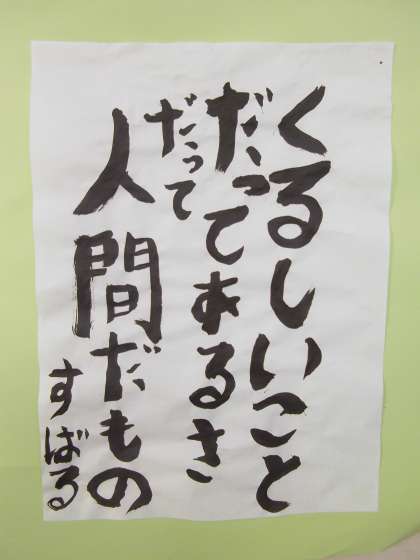 くるしいこと
だってあるさ
だって
人間だもの
すばる